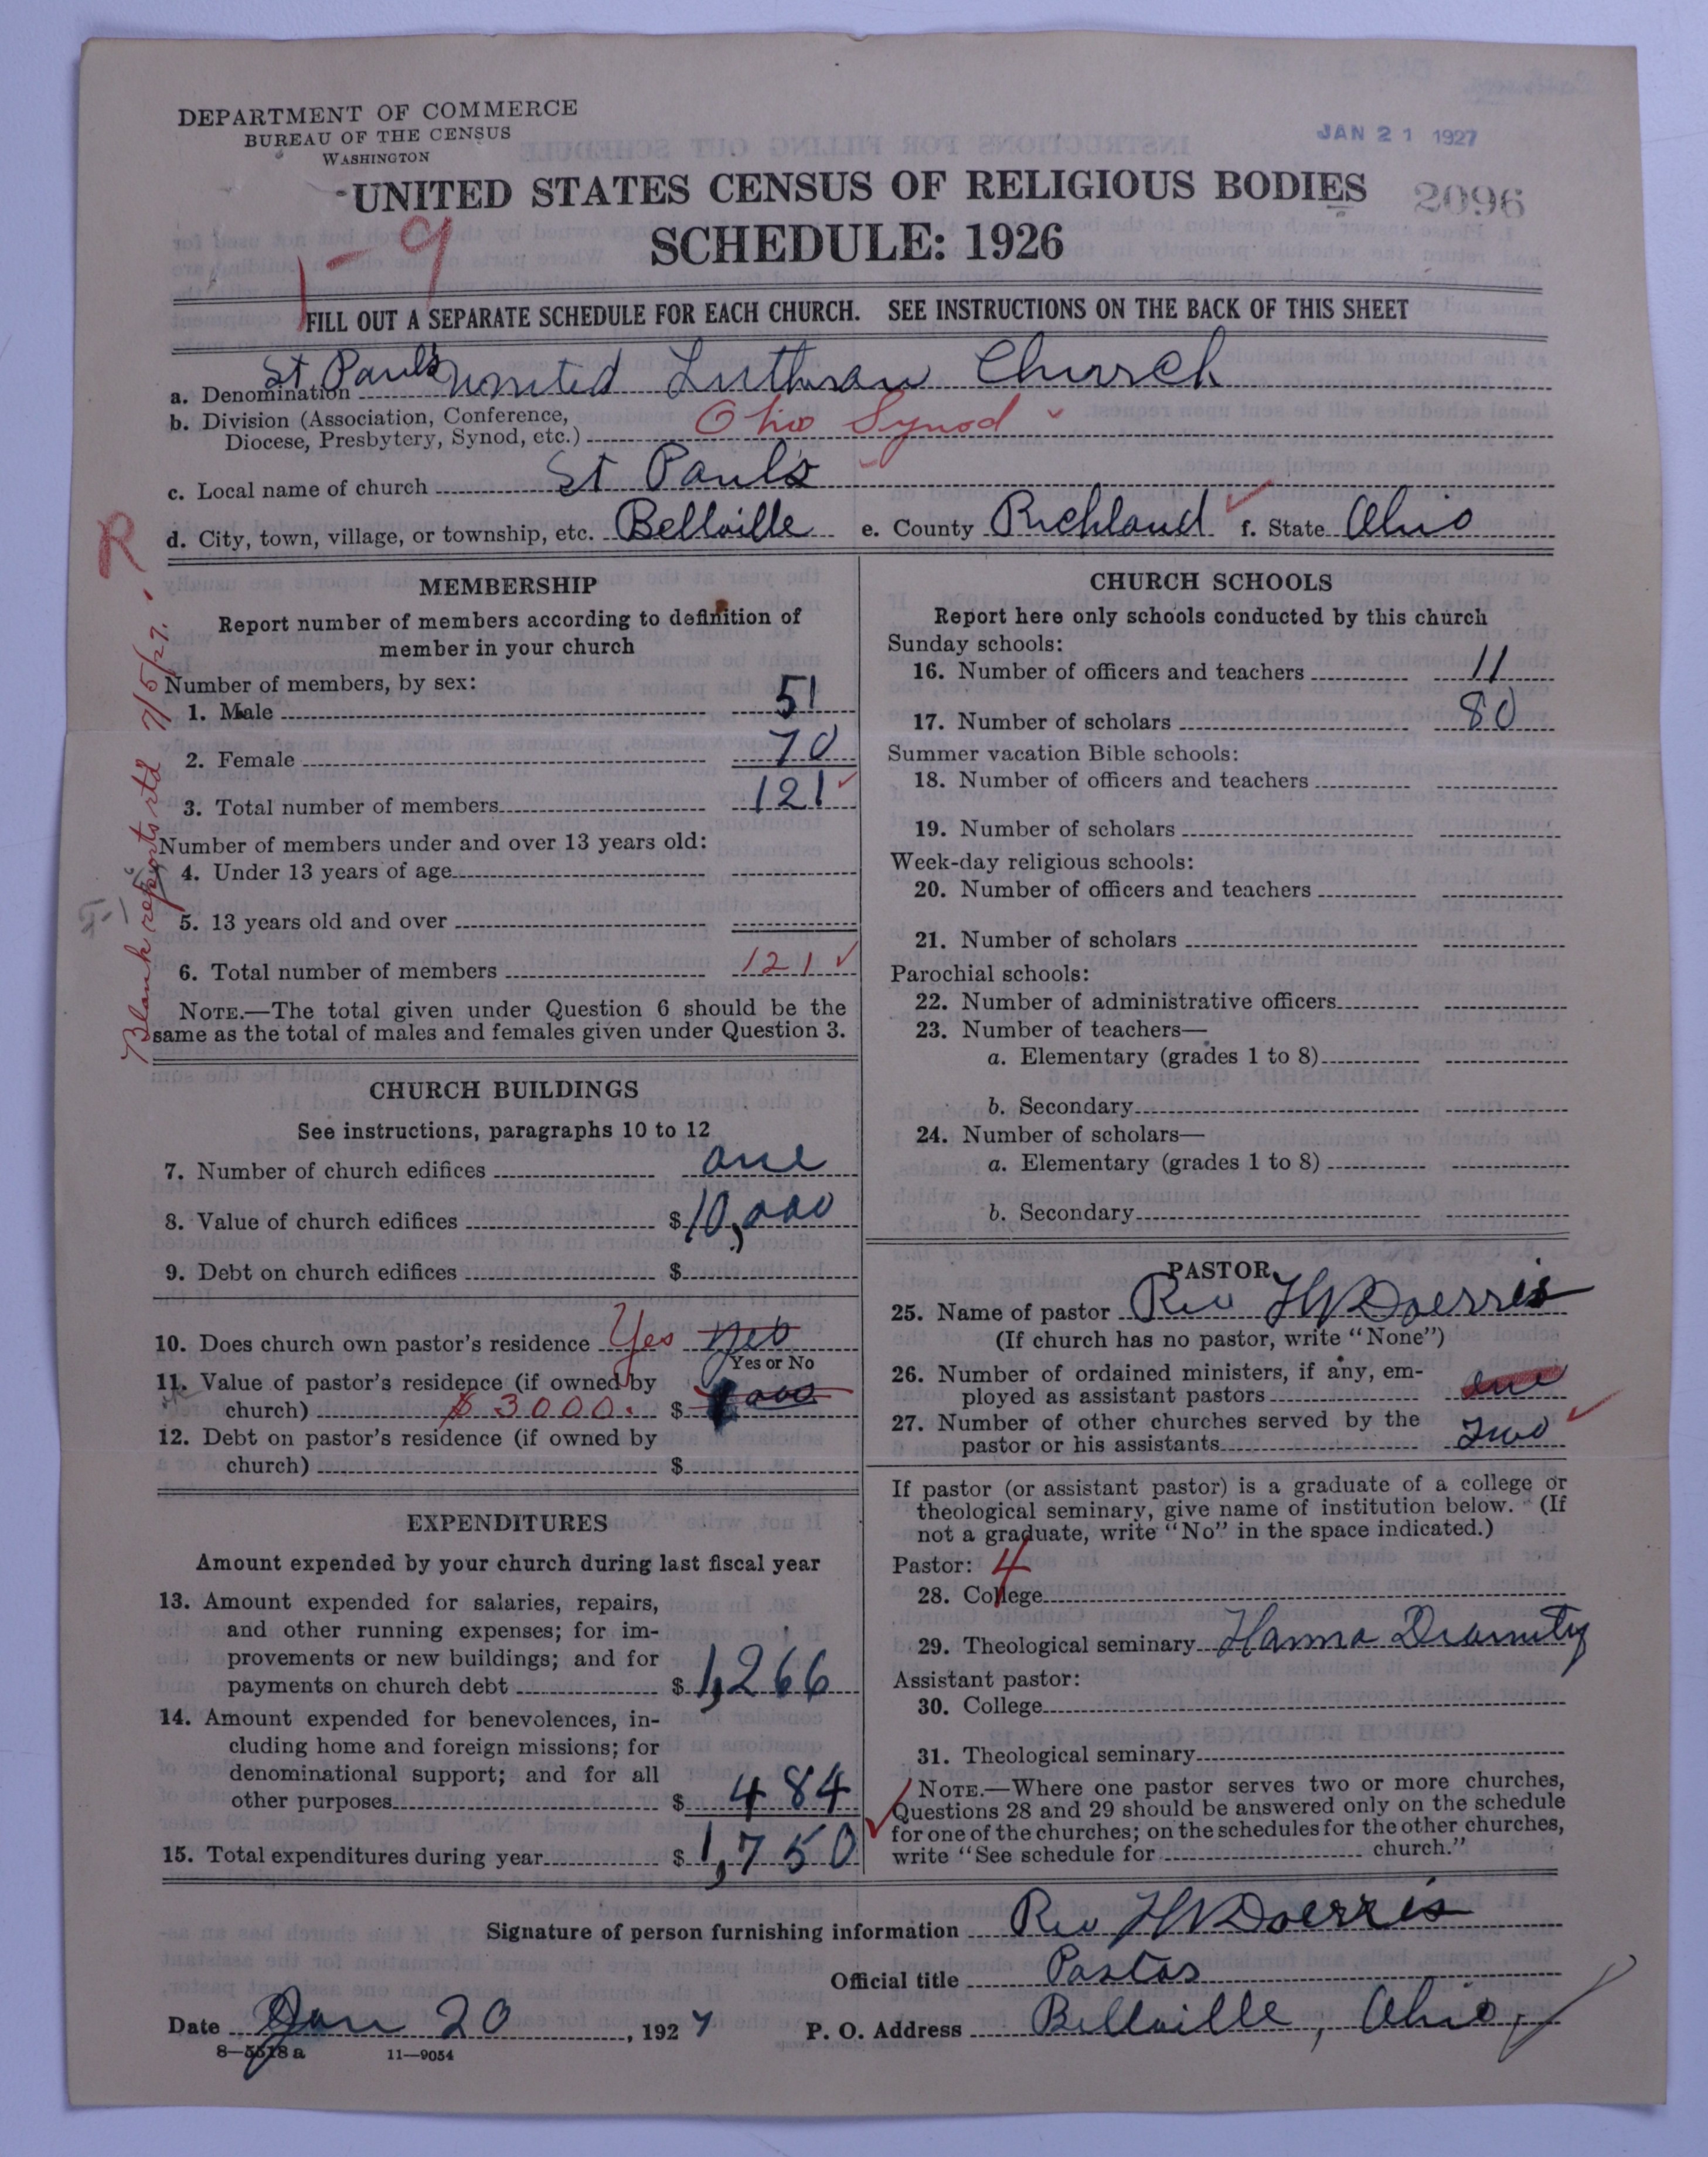 DEPARTMENT OF COMMERCE
BUREAU OF THE CENSUS
WASHINGTON
JAN 21 1927
UNITED STATES CENSUS OF RELIGIOUS BODIES
2096
SCHEDULE: 1926
1-9
FILL OUT A SEPARATE SCHEDULE FOR EACH CHURCH. SEE INSTRUCTIONS ON THE BACK OF THIS SHEET
a. Denomination St Paul's United Lutheran Church
b. Division (Association, Conference,
Diocese, Presbytery, Synod, etc.) Ohio Synod
c. Local name of church St Paul's
d. City, town, village, or township, etc. Bellville e. County Richland f. State Ohio
R
Blank reports rtd 7/5/27.
5-1
MEMBERSHIP
Report number of members according to definition of
member in your church
Number of members, by sex:
1. Male 51
2. Female 70
3. Total number of members 121
Number of members under and over 13 years old:
4. Under 13 years of age
5. 13 years old and over
6. Total number of members 121
NOTE.—The total given under Question 6 should be the
same as the total of males and females given under Question 3.
CHURCH BUILDINGS
See instructions, paragraphs 10 to 12
7. Number of church edifices one
8. Value of church edifices $10,000
9. Debt on church edifices $
10. Does church own pastor's residence Yes yes
Yes or No
11. Value of pastor's residence (if owned by
church) $3000. $ 000
12. Debt on pastor's residence (if owned by
church) $
EXPENDITURES
Amount expended by your church during last fiscal year
13. Amount expended for salaries, repairs,
and other running expenses; for im-
provements or new buildings; and for
payments on church debt $1,266
14. Amount expended for benevolences, in-
cluding home and foreign missions; for
denominational support; and for all
other purposes $ 484
15. Total expenditures during year $1,750
CHURCH SCHOOLS
Report here only schools conducted by this church
Sunday schools:
16. Number of officers and teachers 11
17. Number of scholars 80
Summer vacation Bible schools:
18. Number of officers and teachers
19. Number of scholars
Week-day religious schools:
20. Number of officers and teachers
21. Number of scholars
Parochial schools:
22. Number of administrative officers
23. Number of teachers—
a. Elementary (grades 1 to 8)
b. Secondary
24. Number of scholars—
a. Elementary (grades 1 to 8)
b. Secondary
PASTOR
25. Name of pastor Rev H W Doerres
(If church has no pastor, write "None")
26. Number of ordained ministers, if any, em-
ployed as assistant pastors one
27. Number of other churches served by the
pastor or his assistants Two
If pastor (or assistant pastor) is a graduate of a college or
theological seminary, give name of institution below. (If
not a graduate, write "No" in the space indicated.)
Pastor: 4
28. College
29. Theological seminary Hamma Divinity
Assistant pastor:
30. College
31. Theological seminary
NOTE.—Where one pastor serves two or more churches,
Questions 28 and 29 should be answered only on the schedule
for one of the churches; on the schedules for the other churches,
write "See schedule for church."
Signature of person furnishing information Rev H W Doerres
Official title Pastor
Date Jan 20, 1927 P. O. Address Bellville, Ohio
8—5518 a 11—9054